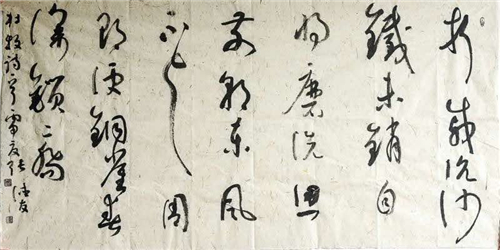 折戟沉沙
鐵未銷自
将磨洗認
前朝東風
不与周
郎便銅雀春
深鎖二喬
杜牧詩